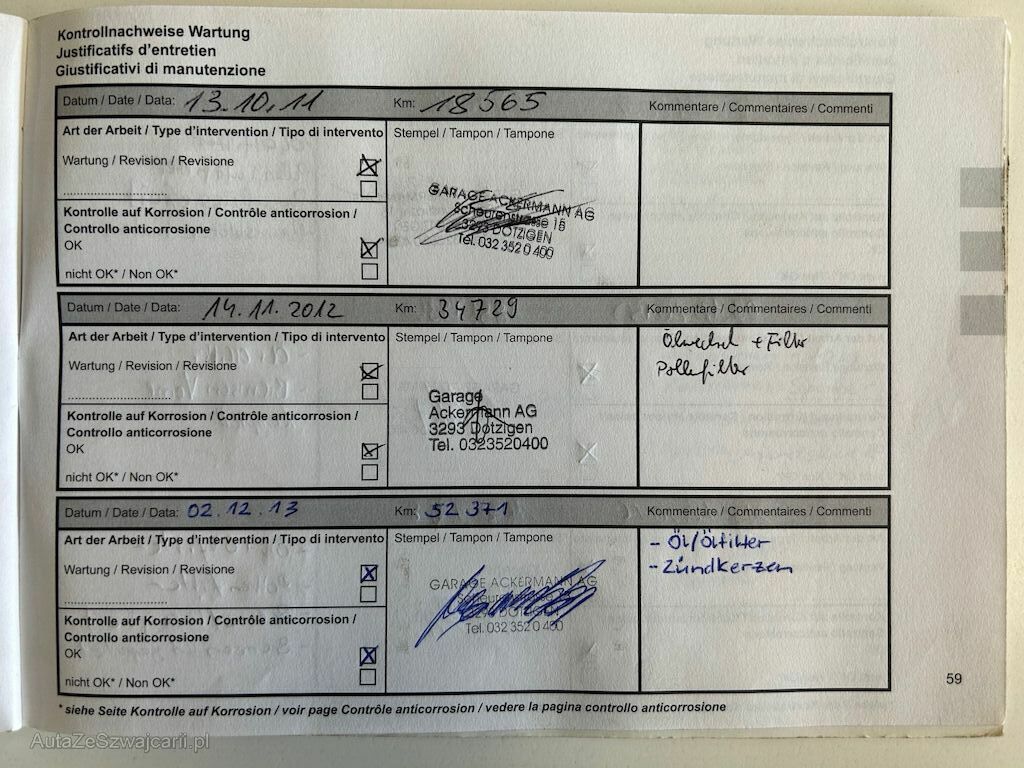 Kontrollnachweise Wartung
Justificatifs d'entretien
Giustificativi di manutenzione
Datum / Date / Data: 13.10.11 Km: 18565 Kommentare / Commentaires / Commenti
Art der Arbeit / Type d'intervention / Tipo di intervento Stempel / Tampon / Tampone
Wartung / Revision / Revisione
Kontrolle auf Korrosion / Contrôle anticorrosion /
Controllo anticorrosione
OK
nicht OK* / Non OK*
GARAGE ACKERMANN AG
Scheurenstrasse 15
3293 DOTZIGEN
Tel. 032 352 0 400
Datum / Date / Data: 14.11.2012 Km: 34729 Kommentare / Commentaires / Commenti
Art der Arbeit / Type d'intervention / Tipo di intervento Stempel / Tampon / Tampone
Wartung / Revision / Revisione
Kontrolle auf Korrosion / Contrôle anticorrosion /
Controllo anticorrosione
OK
nicht OK* / Non OK*
Garage
Ackermann AG
3293 Dotzigen
Tel. 0323520400
Ölwechsel + Filter
Pollenfilter
Datum / Date / Data: 02.12.13 Km: 52371 Kommentare / Commentaires / Commenti
Art der Arbeit / Type d'intervention / Tipo di intervento Stempel / Tampon / Tampone
Wartung / Revision / Revisione
Kontrolle auf Korrosion / Contrôle anticorrosion /
Controllo anticorrosione
OK
nicht OK* / Non OK*
GARAGE ACKERMANN AG
DOTZIGEN
Tel. 032 352 0 400
- Öl/Ölfilter
- Zündkerzen
* siehe Seite Kontrolle auf Korrosion / voir page Contrôle anticorrosion / vedere la pagina controllo anticorrosione
59
AutaZeSzwajcarii.pl